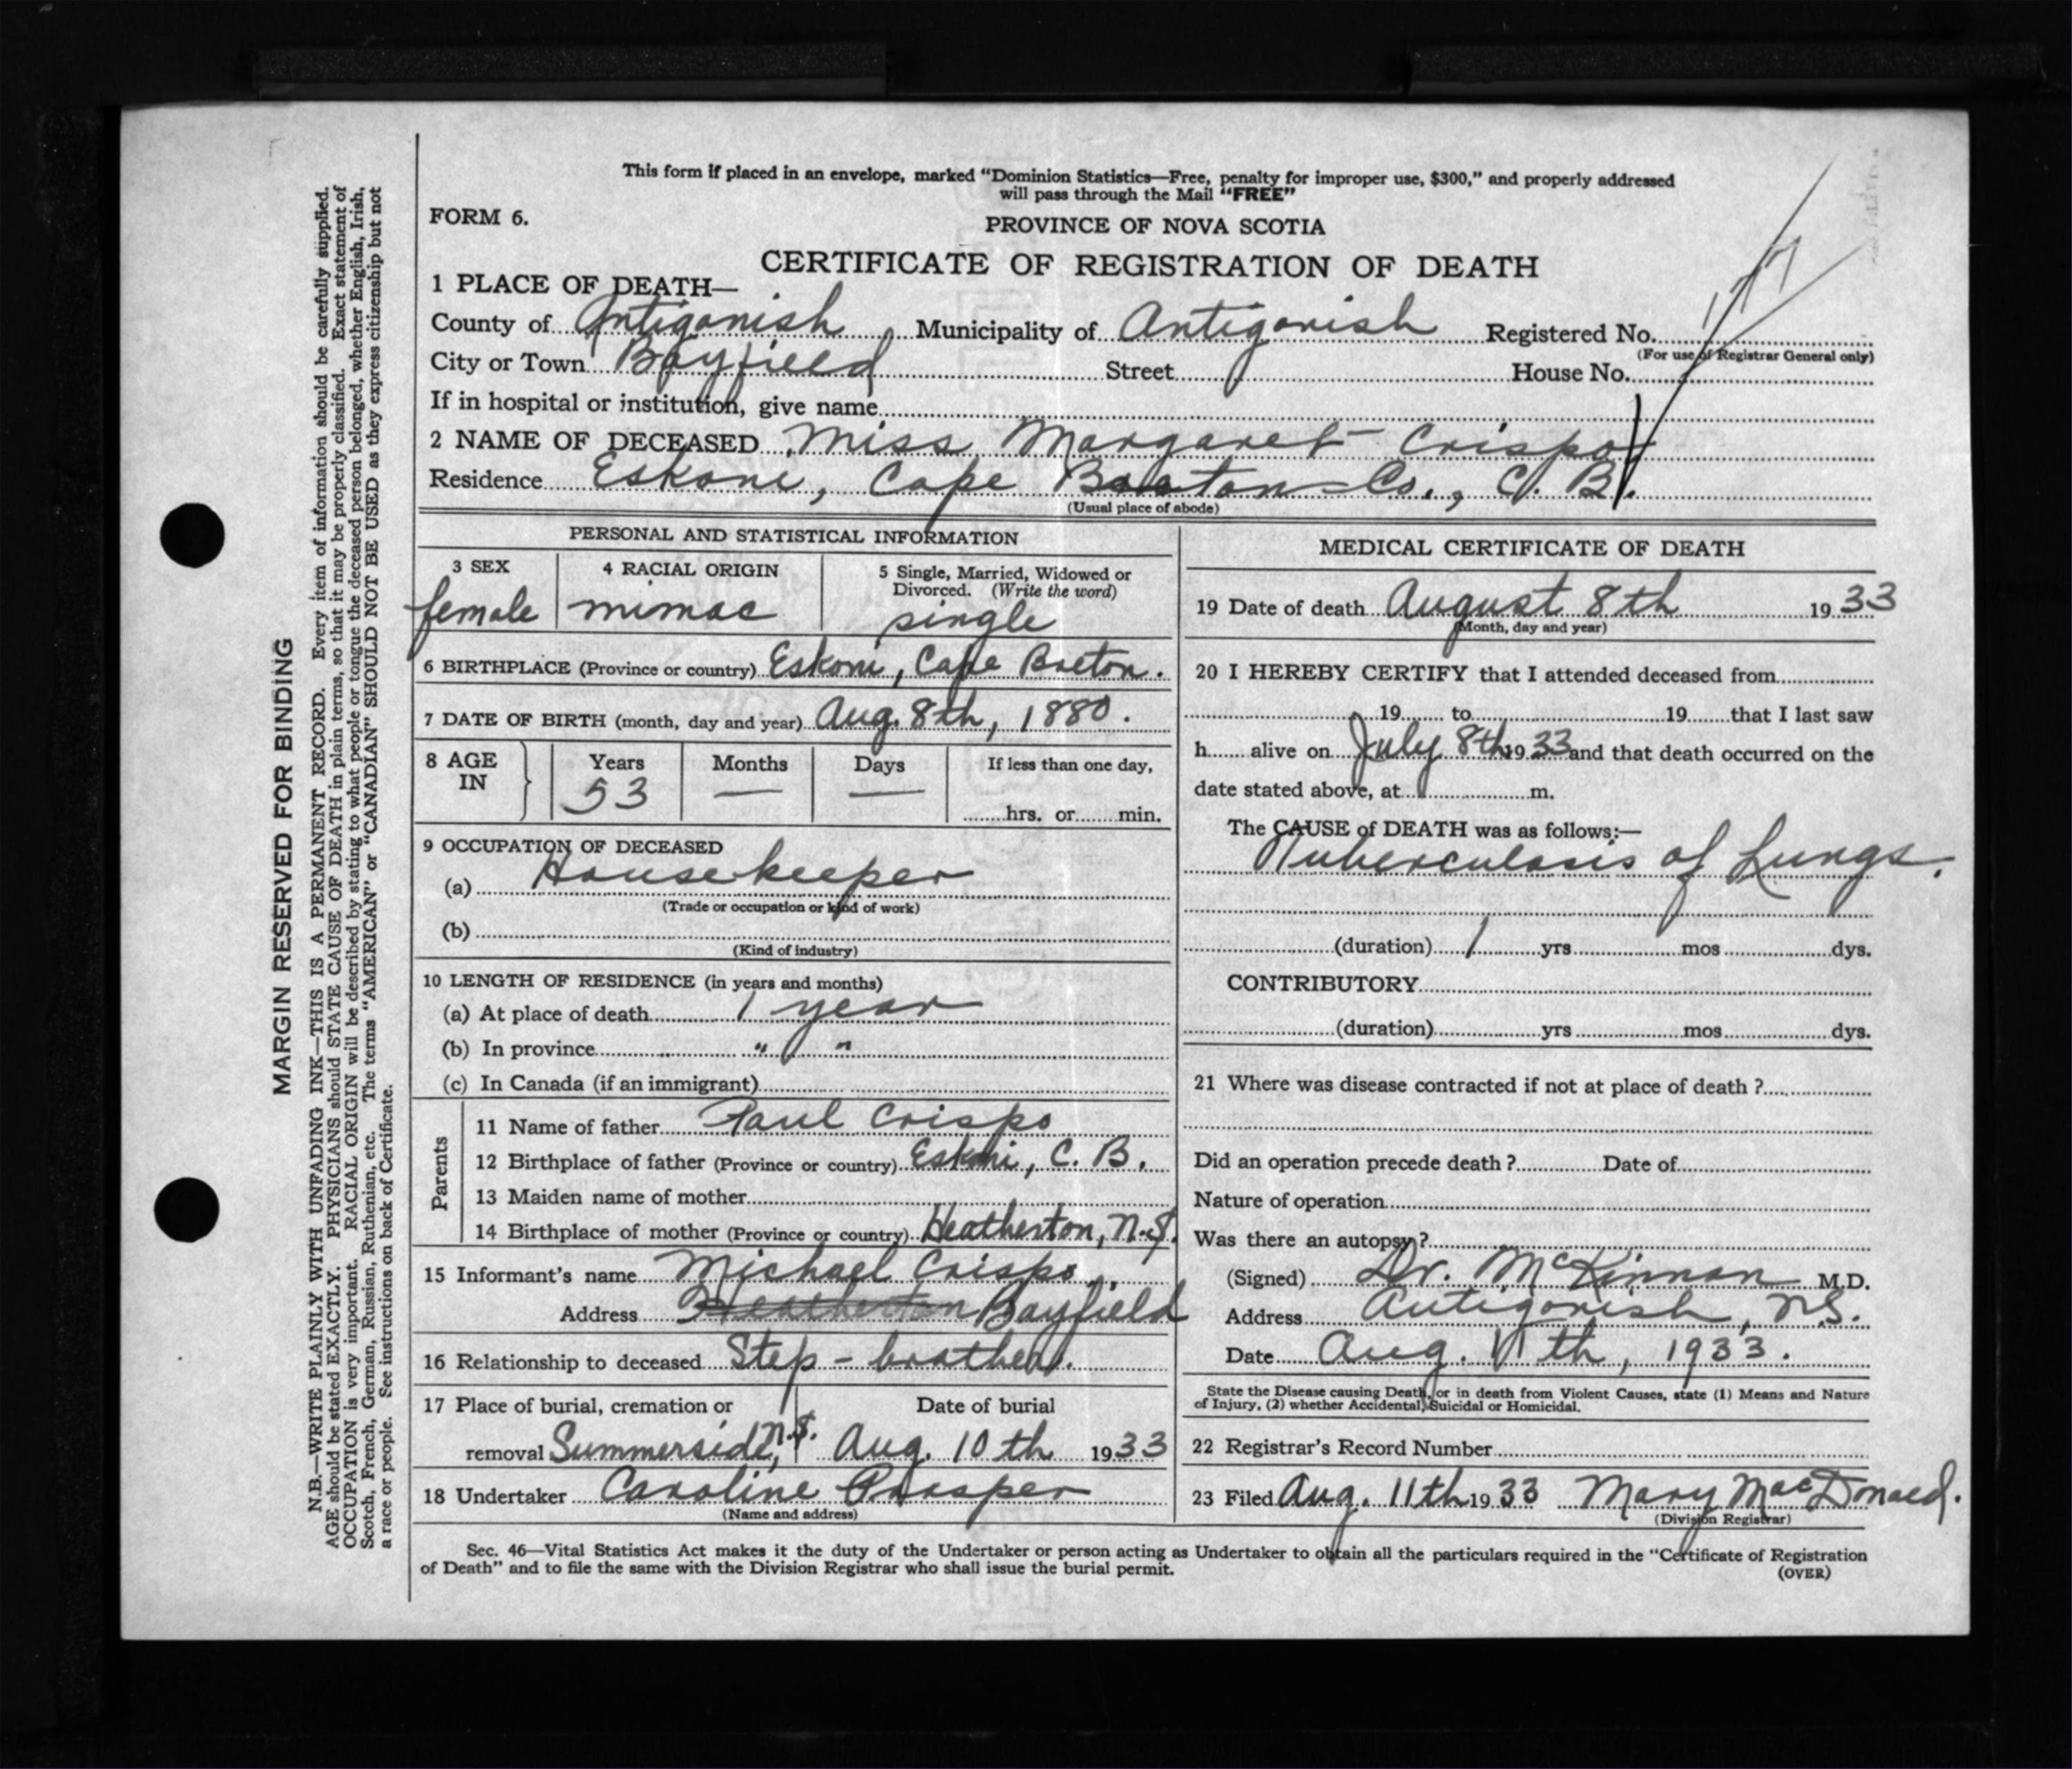 This form if placed in an envelope, marked “Dominion Statistics—Free, penalty for improper use, $300,” and properly addressed
will pass through the Mail “FREE”
FORM 6.
PROVINCE OF NOVA SCOTIA
CERTIFICATE OF REGISTRATION OF DEATH
177
1 PLACE OF DEATH—
County of Antigonish, Municipality of Antigonish Registered No.
(For use of Registrar General only)
City or Town Bayfield Street House No.
If in hospital or institution, give name
2 NAME OF DECEASED Miss Margaret Crispo
Residence Eskoni, Cape Breton Co., C. B.
(Usual place of abode)
PERSONAL AND STATISTICAL INFORMATION
3 SEX 4 RACIAL ORIGIN 5 Single, Married, Widowed or
Divorced. (Write the word)
female mimac single
6 BIRTHPLACE (Province or country) Eskoni, Cape Breton.
7 DATE OF BIRTH (month, day and year) Aug. 8th, 1880.
8 AGE IN Years Months Days If less than one day,
53 — — hrs. or min.
9 OCCUPATION OF DECEASED
(a) Housekeeper
(Trade or occupation or kind of work)
(b)
(Kind of industry)
10 LENGTH OF RESIDENCE (in years and months)
(a) At place of death 1 year
(b) In province " "
(c) In Canada (if an immigrant)
Parents
11 Name of father Paul Crispo
12 Birthplace of father (Province or country) Eskoni, C. B.
13 Maiden name of mother
14 Birthplace of mother (Province or country) Heatherton, N.S.
15 Informant's name Michael Crispo
Address Heatherton Bayfield
16 Relationship to deceased Step-brother.
17 Place of burial, cremation or Date of burial
removal Summerside, N.S. Aug. 10th 1933
18 Undertaker Caroline Prosper
(Name and address)
MEDICAL CERTIFICATE OF DEATH
19 Date of death August 8th 1933
(Month, day and year)
20 I HEREBY CERTIFY that I attended deceased from
19 to 19 that I last saw
h alive on July 8th 1933 and that death occurred on the
date stated above, at m.
The CAUSE of DEATH was as follows:—
Tuberculosis of Lungs.
(duration) 1 yrs mos dys.
CONTRIBUTORY
(duration) yrs mos dys.
21 Where was disease contracted if not at place of death ?
Did an operation precede death ? Date of
Nature of operation
Was there an autopsy ?
(Signed) Dr. McKinnon M.D.
Address Antigonish, N.S.
Date Aug. 11th, 1933.
State the Disease causing Death, or in death from Violent Causes, state (1) Means and Nature
of Injury, (2) whether Accidental, Suicidal or Homicidal.
22 Registrar's Record Number
23 Filed Aug. 11th 1933 Mary MacDonald.
(Division Registrar)
Sec. 46—Vital Statistics Act makes it the duty of the Undertaker or person acting as Undertaker to obtain all the particulars required in the “Certificate of Registration
of Death” and to file the same with the Division Registrar who shall issue the burial permit.
(OVER)
MARGIN RESERVED FOR BINDING
N.B.—WRITE PLAINLY WITH UNFADING INK—THIS IS A PERMANENT RECORD. Every item of information should be carefully supplied.
AGE should be stated EXACTLY. PHYSICIANS should STATE CAUSE OF DEATH in plain terms, so that it may be properly classified. Exact statement of
OCCUPATION is very important. RACIAL ORIGIN will be described by stating to what people or tongue the deceased person belonged, whether English, Irish,
Scotch, French, German, Russian, Ruthenian, etc. The terms “AMERICAN” or “CANADIAN” SHOULD NOT BE USED as they express citizenship but not
a race or people. See instructions on back of Certificate.